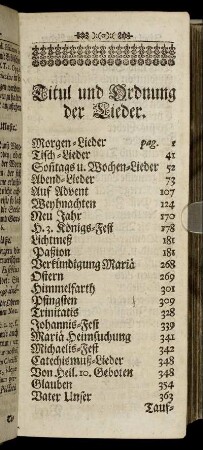 Titul und Ordnung
der Lieder.
Morgen-Lieder pag. 1
Tisch-Lieder 41
Soñtags u. Wochen-Lieder 52
Abend-Lieder 73
Auf Advent 107
Weyhnachten 124
Neu Jahr 170
H. 3. Königs-Fest 178
Lichtmeß 181
Paßion 181
Verkündigung Mariä 268
Ostern 269
Himmelfarth 301
Pfingsten 309
Trinitatis 328
Johannis-Fest 339
Mariä Heimsuchung 341
Michaelis-Fest 342
Catechismuß-Lieder 348
Von Heil. 10. Geboten 348
Glauben 354
Vater Unser 363
Tauf-